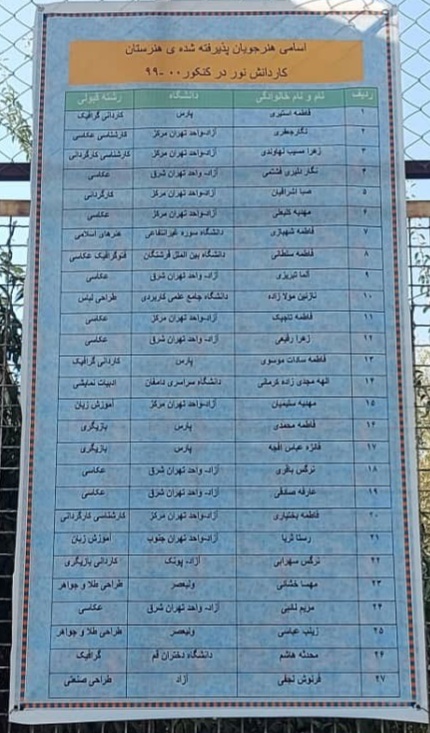 اسامی هنرجویان پذیرفته شده ی هنرستان
کاردانش نور در کنکور ۰۰-۹۹
ردیف نام و نام خانوادگی دانشگاه رشته قبولی
۱ فاطمه استیری پارس کاردانی گرافیک
۲ نگار جعفری آزاد-واحد تهران مرکز کارشناسی عکاسی
۳ زهرا مسیب نهاوندی آزاد-واحد تهران مرکز کارشناسی کارگردانی
۴ نگار دلیری آزاد- واحد تهران شرق عکاسی
۵ صبا اشراقیان آزاد-واحد تهران مرکز کارگردانی
۶ مهدیه آزاد-واحد تهران مرکز عکاسی
۷ فاطمه شهبازی دانشگاه سوره غیرانتفاعی هنرهای اسلامی
۸ فاطمه سلطانی دانشگاه بین الملل فرشتگان فتوگرافیک عکاسی
۹ تبریزی آزاد- واحد تهران شرق عکاسی
۱۰ نازنین مولا زاده دانشگاه جامع علمی کاربردی طراحی لباس
۱۱ فاطمه تاجیک آزاد-واحد تهران مرکز عکاسی
۱۲ زهرا رفیعی آزاد- واحد تهران شرق عکاسی
۱۳ فاطمه سادات موسوی پارس کاردانی گرافیک
۱۴ الهه مجدی زاده کرمانی دانشگاه سراسری دامغان ادبیات نمایشی
۱۵ مهدیه سلیمیان آزاد-واحد تهران مرکز آموزش زبان
۱۶ فاطمه محمدی پارس بازیگری
۱۷ فائزه عباس افچه پارس بازیگری
۱۸ نرگس باقری آزاد- واحد تهران شرق عکاسی
۱۹ عارفه صادقی آزاد- واحد تهران شرق عکاسی
۲۰ فاطمه بختیاری آزاد-واحد تهران مرکز کارشناسی کارگردانی
۲۱ رستا ثریا آزاد-واحد تهران جنوب آموزش زبان
۲۲ نرگس سهرابی آزاد- پونک کاردانی بازیگری
۲۳ مهسا خشانی ولیعصر طراحی طلا و جواهر
۲۴ مریم آزاد- واحد تهران شرق عکاسی
۲۵ زینب عباسی ولیعصر طراحی طلا و جواهر
۲۶ محدثه هاشم دانشگاه دختران قم گرافیک
۲۷ فرنوش نجفی آزاد طراحی صنعتی